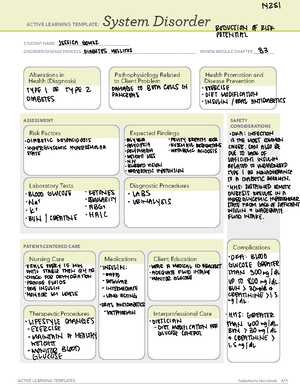 N251
ACTIVE LEARNING TEMPLATE: System Disorder
REDUCTION OF RISK
POTENTIAL
STUDENT NAME
DISORDER/DISEASE PROCESS DIABETES MELLITUS
REVIEW MODULE CHAPTER 83
Alterations in
Health (Diagnosis)
TYPE 1 OR TYPE 2
DIABETES
Pathophysiology Related
to Client Problem
DAMAGE TO CELLS IN
PANCREAS
Health Promotion and
Disease Prevention
- EXERCISE
- DIET MODIFICATION
- INSULIN / ORAL ANTIDIABETICS
ASSESSMENT
SAFETY
CONSIDERATIONS
Risk Factors
- DIABETIC KETOACIDOSIS
- HYPERGLYCEMIC HYPEROSMOLAR
STATE
Expected Findings
- POLYURIA
- POLYDIPSIA
- POLYPHAGIA
- WEIGHT LOSS
- N/V
- BLURRED VISION
- FRUITY BREATH ODOR
- METABOLIC ACIDOSIS
- DKA: INFECTION
IS THE MOST COMMON
CAUSE. CAN ALSO BE
DUE TO LACK OF
SUFFICIENT INSULIN
RELATED TO UNDIAGNOSED
TYPE 1 OR NONADHERENCE
TO A DIABETIC REGIMEN.
- HHS: SUSTAINED OSMOTIC
DIURESIS RESULTS IN A
HYPERGLYCEMIC HYPEROSMOLAR
STATE FROM LACK OF SUFFICIENT
INSULIN + INADEQUATE
FLUID INTAKE.
Laboratory Tests
- BLOOD GLUCOSE
- Na+
- K+
- BUN / CREATINE
- KETONES
- OSMOLARITY
- ABGs
- HA1C
Diagnostic Procedures
- LABS
- URINALYSIS
PATIENT-CENTERED CARE
Complications
Nursing Care
- CHECK FOR DEHYDRATION
- PROVIDE FLUIDS
- GIVE INSULIN
- MONITOR VS
Medications
- INSULIN:
- RAPID
- REGULAR
- INTERMEDIATE
- LONG ACTING
- ORAL ANTIDIABETICS
- METFORMIN
Client Education
- WEAR A MEDICAL ID BRACELET
- ADEQUATE FLUID INTAKE
- MONITOR GLUCOSE
- DKA: BLOOD
GLUCOSE GREATER
THAN 300 mg/dL
BUN > 30 mg
+ CREATININE > 1.5
mg/dL
- HHS: GREATER
THAN 600 mg/dL
BUN > 30 mg
+ CREATININE >
1.5 mg/dL
Therapeutic Procedures
- LIFESTYLE CHANGES
- EXERCISE
- MAINTAIN A HEALTHY
WEIGHT
- MONITOR BLOOD
GLUCOSE
Interprofessional Care
- DIETICIAN
- DIET MODIFICATION FOR
GLUCOSE CONTROL
ACTIVE LEARNING TEMPLATES
THERAPEUTIC PROCEDURE A11